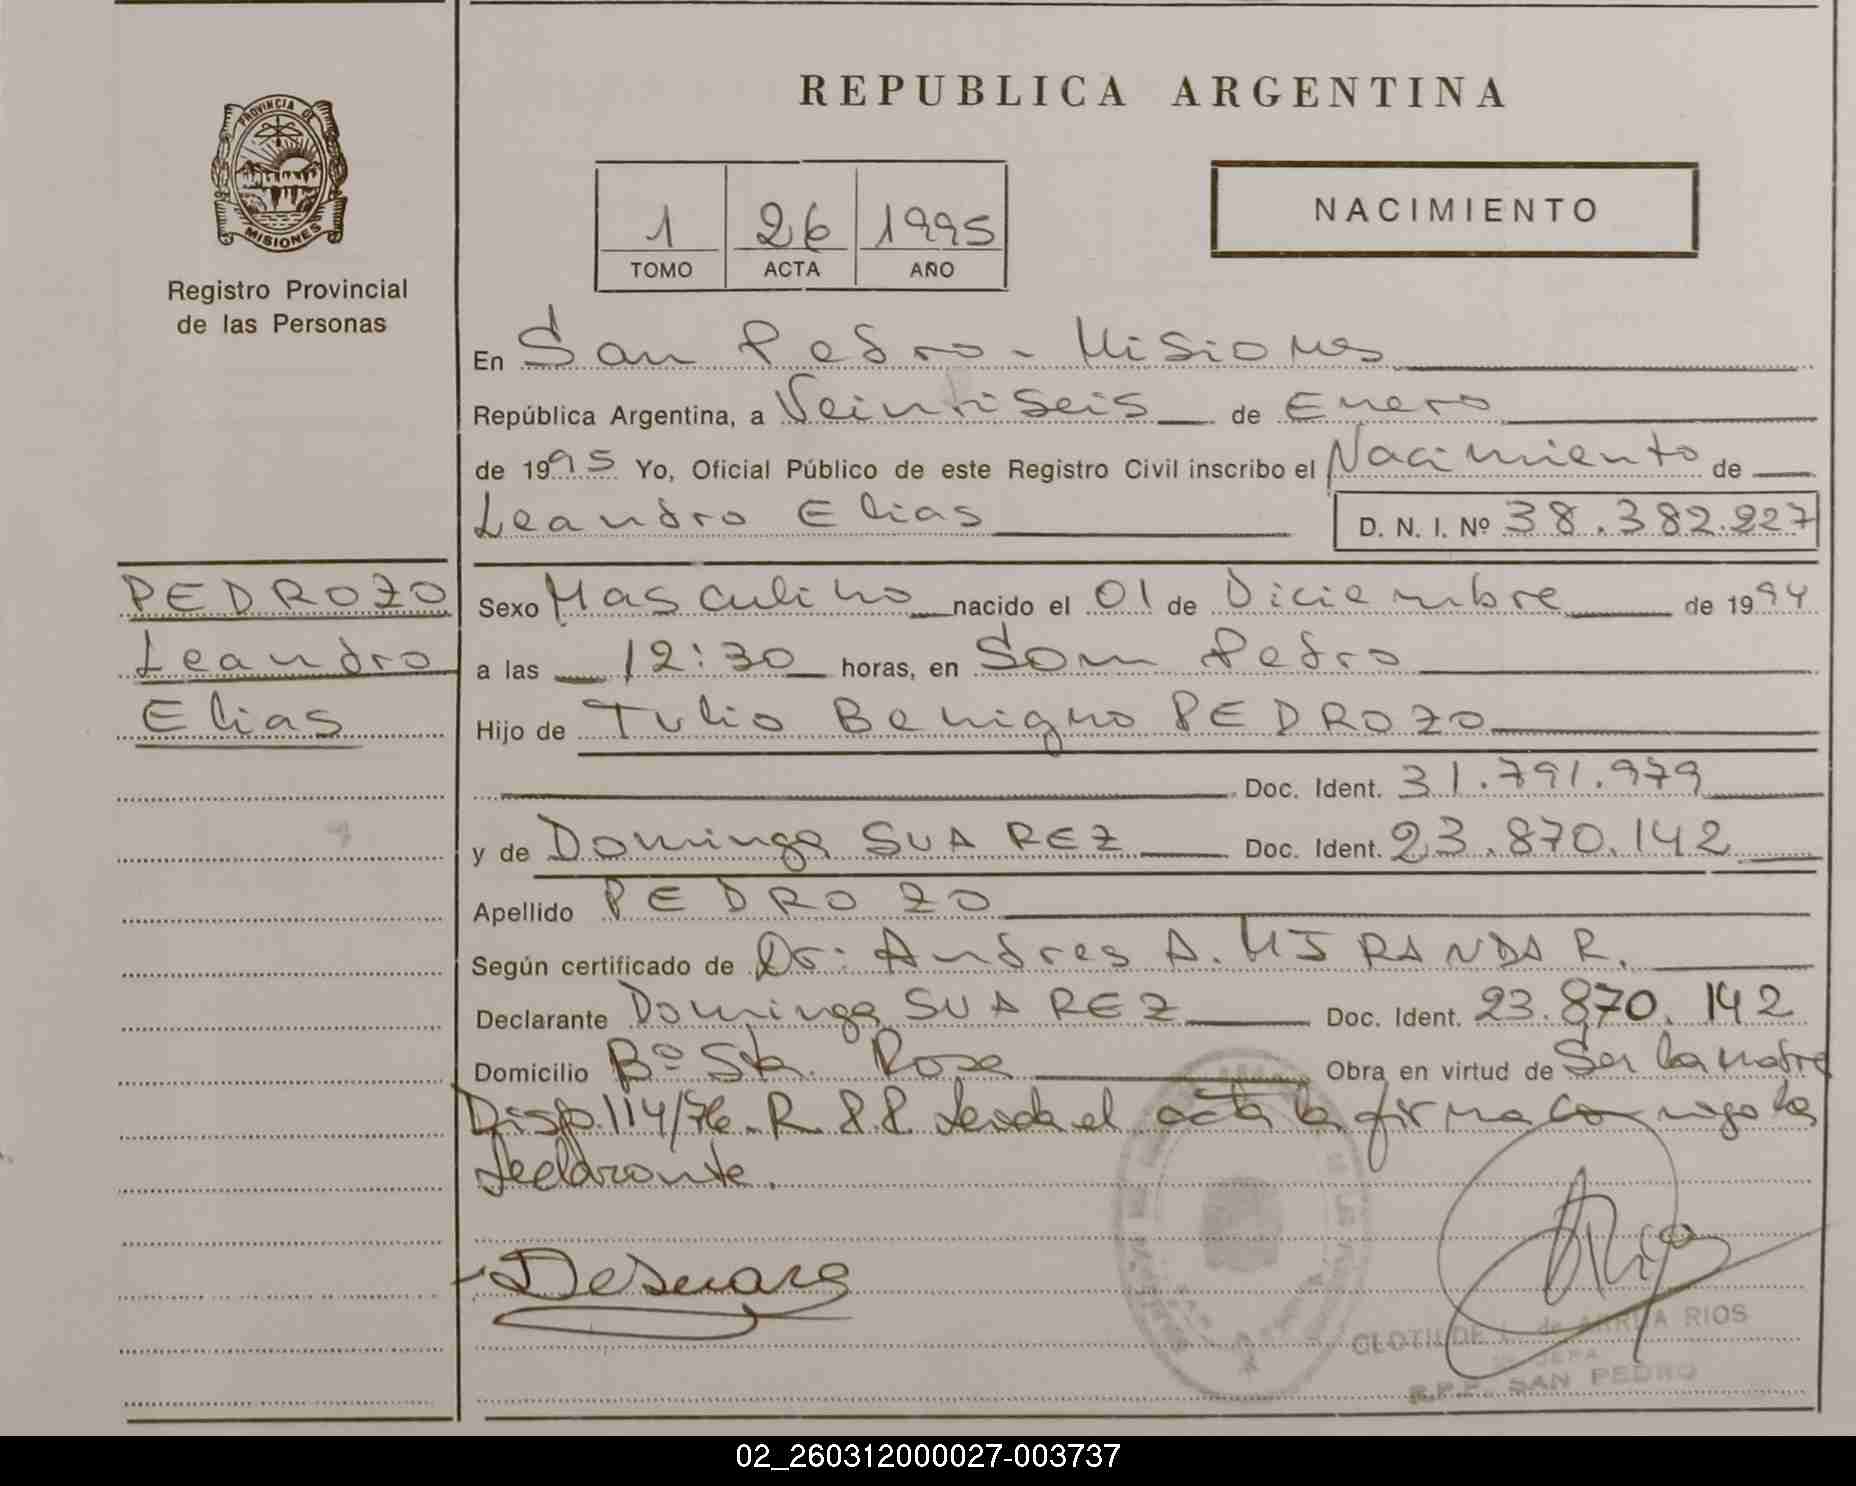 REPUBLICA ARGENTINA
PROVINCIA DE
MISIONES
Registro Provincial
de las Personas
1 26 1995
TOMO ACTA AÑO
NACIMIENTO
En San Pedro - Misiones
República Argentina, a Veintiseis de Enero
de 1995 Yo, Oficial Público de este Registro Civil inscribo el Nacimiento de
Leandro Elias D. N. I. Nº 38.382.227
PEDROZO
Leandro
Elias
Sexo Masculino nacido el 01 de Diciembre de 1994
a las 12:30 horas, en San Pedro
Hijo de Tulio Benigno PEDROZO
Doc. Ident. 31.791.979
y de Dominga SUAREZ Doc. Ident. 23.870.142
Apellido PEDROZO
Según certificado de Dr: Andres A. MIRANDA R.
Declarante Dominga SUAREZ Doc. Ident. 23.870.142
Domicilio Bº Sta. Rosa Obra en virtud de Ser la madre
Disp. 114/76. R. P.P. Leida el acta la firma conmigo la
declarante.
CLOTILDE L. de ARRUA RIOS
JEFA
R.P.P. SAN PEDRO
02_260312000027-003737